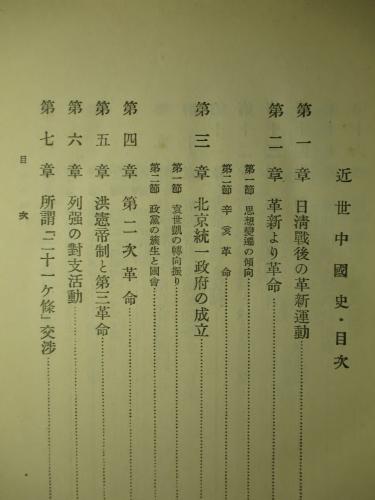 近世中國史・目次
第一章 日淸戰後の革新運動
第二章 革新より革命
第一節 思想變遷の傾向
第二節 辛亥革命
第三章 北京統一政府の成立
第一節 袁世凱の轉向振り
第二節 政黨の簇生と國會
第四章 第二次革命
第五章 洪憲帝制と第三革命
第六章 列强の對支活動
第七章 所謂「二十一ケ條」交渉
目次